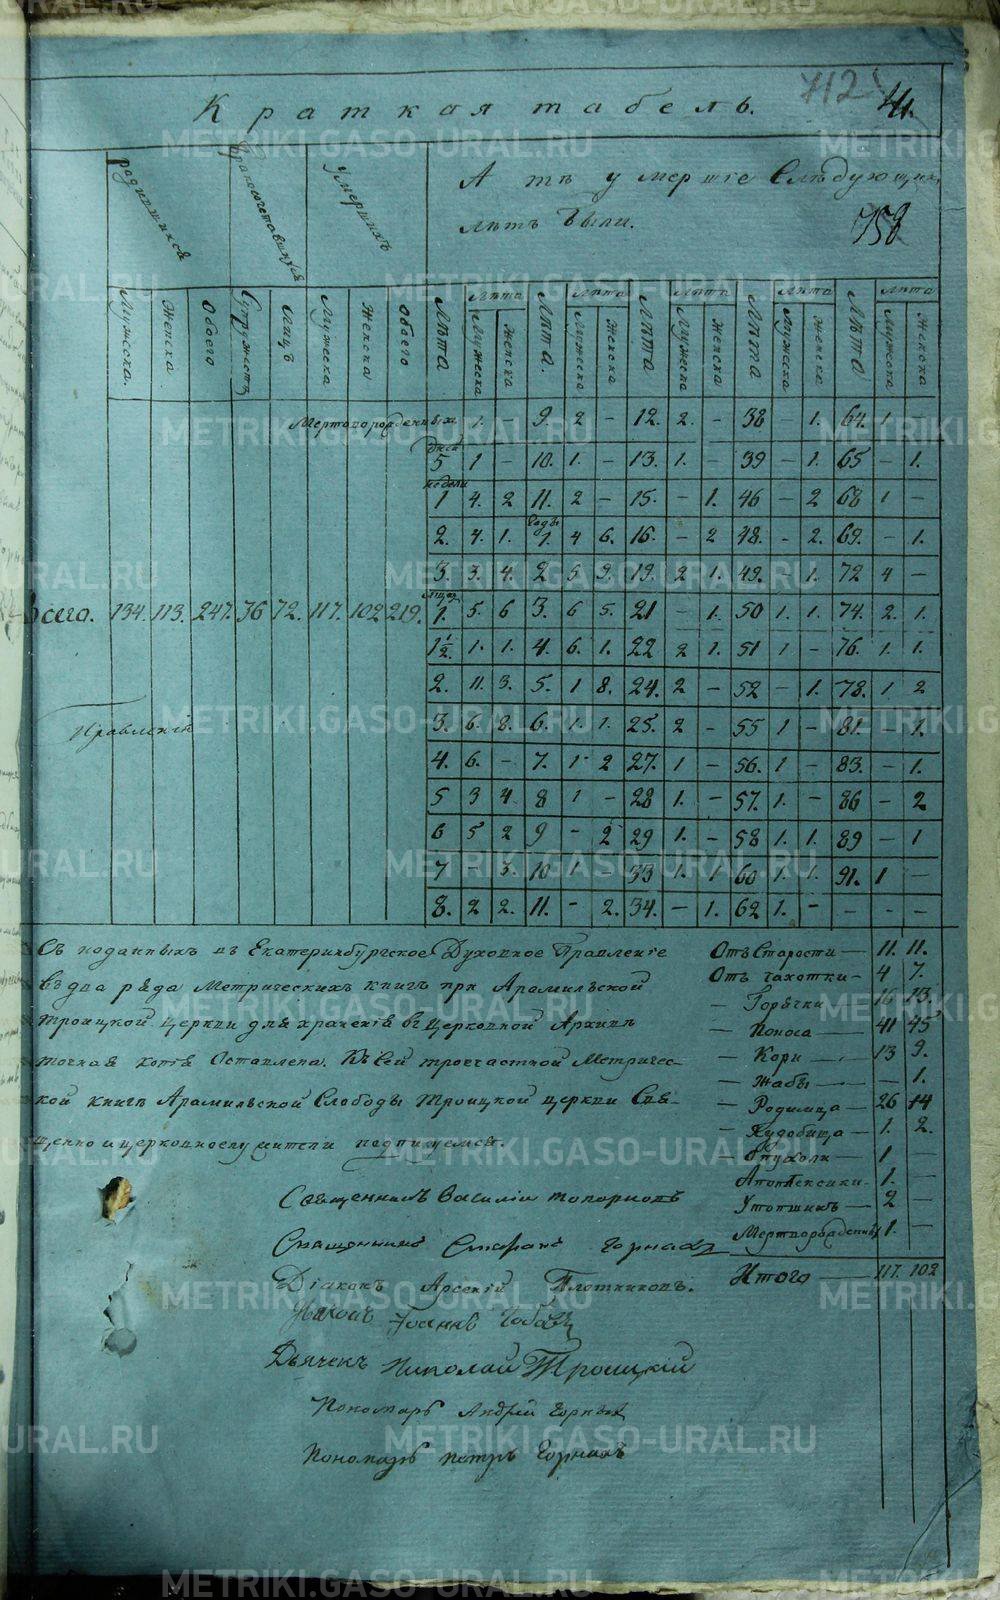 712
41.
Краткая табель.
родившихся
Бракосочетавшихся
Умерших
А тѣ умершіе Слѣдующих
лѣтъ были.
758
Мужеска. Женска Обоего Супружествъ Лицъ Мужеска Женска Обоего Лѣта Лѣта Мужеска Женска Лѣта. Лѣта Мужеска Женска Лѣта Лѣта Мужеска Женска Лѣта Лѣта Мужеска Женска Лѣта Лѣта Мужеска Женска
Мертворожденных 1. - 9. 2 - 12. 2. - 38 1. 64. 1 -
дней
5 1 - 10. 1. - 13. 1. - 39 - 1. 65 - 1.
недели
1 4. 2 11. 2 - 15. - 1. 46 - 2 68 1 -
годы
2. 4. 1. 1. 4 6. 16. - 2 48. - 2. 69. - 1.
3. 3. 4. 2 5 9. 19. 2 1. 49. 1. 72 4 -
Всего. 134. 113. 247. 36 72. 117. 102 219. 1. 5 6 3. 6 5. 21 - 1. 50 1. 1. 74. 2. 1.
1½. 1. 1. 4. 6. 1. 22 2 1. 51 1 - 76. 1. 1.
2. 11. 3. 5. 1 8. 24. 2 - 52 - 1. 78. 1 2
Правленія
3. 6. 8. 6. 1. 1. 25. 2 - 55 1 - 81. - 1.
4. 6. - 7. 1 2 27. 1 - 56. 1 - 83. - 1.
5 3 4 8 1 - 28 1. - 57. 1. - 86 - 2
6 5 2 9 - 2 29 1. - 58 1. 1. 89 - 1
7 - 3. 10 1. - 33 1. 1 60 1. 1. 91. 1 -
8. 2 2. 11. - 2. 34. - 1. 62 1. - - - -
Съ поданныхъ въ Екатеринбургское Духовное Правленіе
в два ряда Метрическихъ книгъ при Арамильской
Троицкой церкви для храненія в церковной Архивѣ
точная копія Оставлена. Къ сей троечастной Метричес-
кой книгѣ Арамильской Слободы Троицкой церкви Свя-
щенно и церковнослужители подпишемся.
Священникъ Василій Топорковъ
Священникъ Стефанъ Горныхъ
Діаконъ Арсеній Плотниковъ.
Дьячекъ Николай Троицкій
Пономарь Андрей Горныхъ
Пономарь Петръ Горныхъ
Отъ Старости — 11. 11.
Отъ чахотки - 4 7.
- Горячки 16 13.
- Поноса — 41 45
- Кори — 13 9.
- Жабы — - 1.
- Родимца — 26 14
- Худобища — 1. 2.
- Опухоли — 1 —
Апоплексики - 1. —
Утопшихъ — 2 —
Мертворожденныхъ 1. —
Итого — 117. 102
METRIKI.GASO-URAL.RU